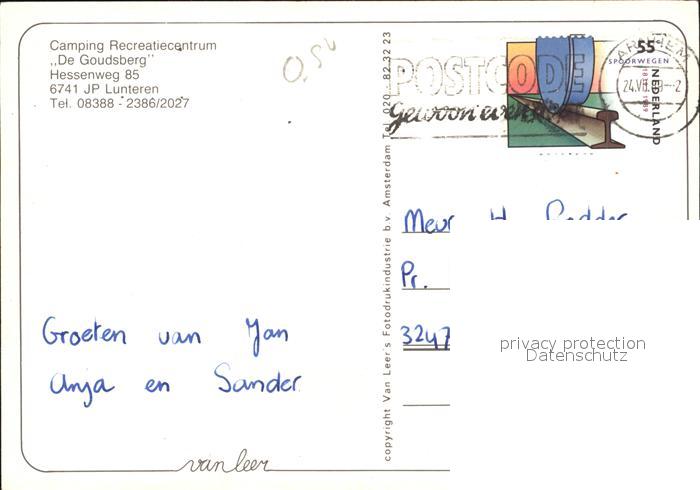 Camping Recreatiecentrum
,,De Goudsberg"
Hessenweg 85
6741 JP Lunteren
Tel. 08388 - 2386/2027
0,50
Groeten van Jan
Anja en Sander
van leer
copyright Van Leer's Fotodrukindustrie b.v. Amsterdam Tel. 020 - 82 32 23
POSTCODE
gewoon even
ARNHEM
55
SPOORWEGEN
NEDERLAND
Pr.
3247
privacy protection
Datenschutz